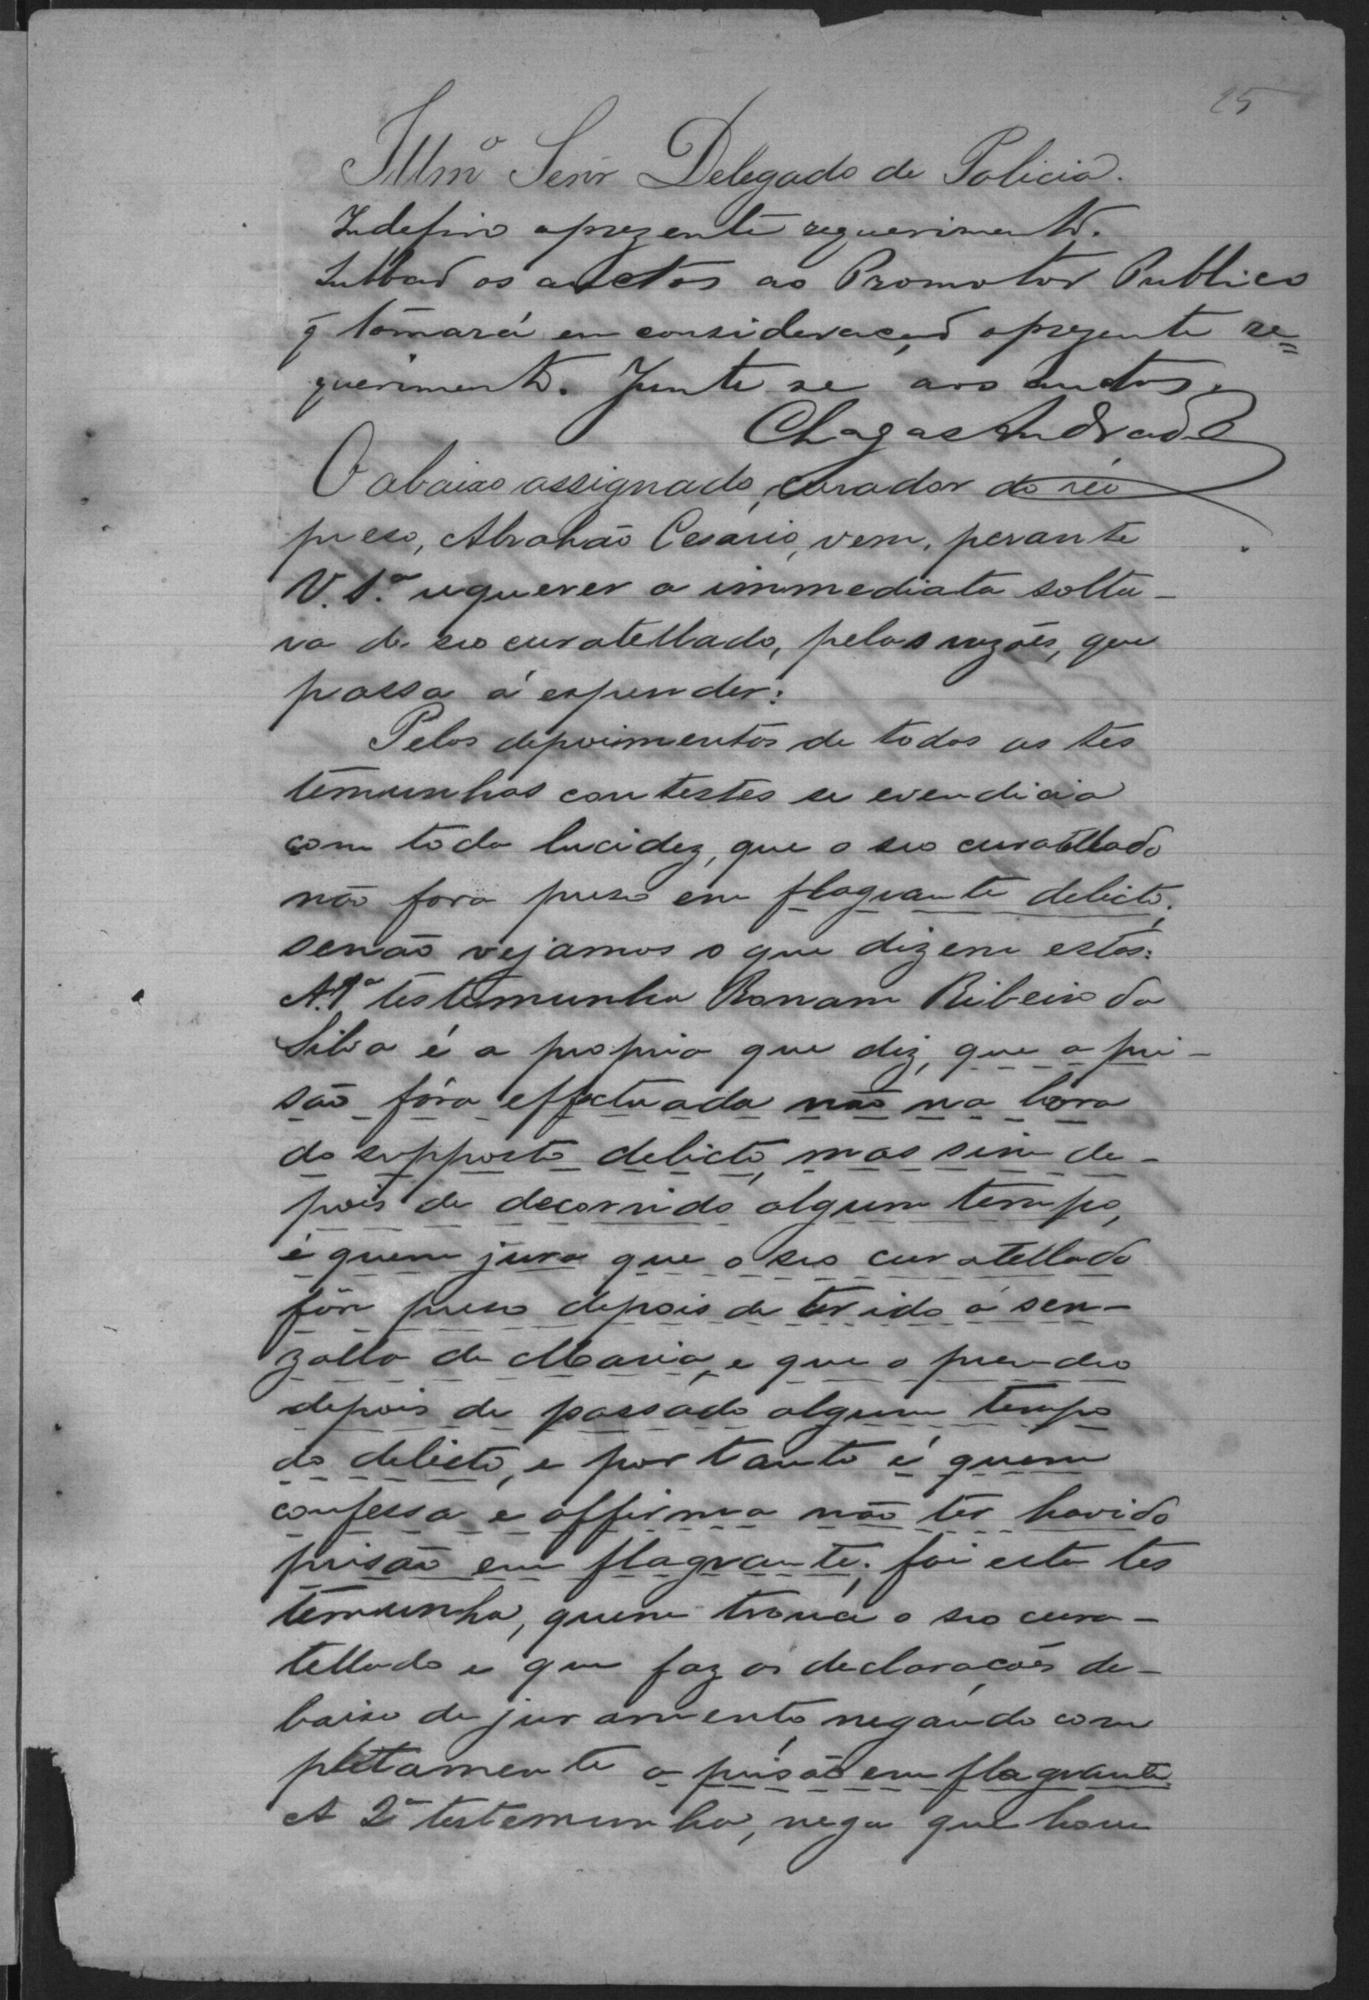 25
Illmº Senr Delegado de Policia.
Indefiro aprezente requerimento.
os auctos ao Promotor Publico
q̃ tomará em consideração aprezente re=
querimento. Junte se aos autos.
Chagas Andrade
O abaixo assignado, curador do réo
preso, Abrahão Cesario, vem, perante
V. Sª requerer a immediata soltu-
ra de seo curatellado, pelas razões, que
passa á expender:
Pelos depoimentos de todas as tes
temunhas contestes se evendicia
com toda lucidez, que o seo curatellado
não fora preso em flagrante delicto;
senão vejamos o que dizem estas:
A 1ª testemunha Ronam Ribeiro da
Silva é a propria que diz, que a pri-
são fóra effectuada não na hora
do supposto delicto, mas sim de-
pois de decorrido algum tempo,
é quem jura que o seo curatellado
fôra preso depois de ter ido á sen-
zalla de Maria, e que o prendeo
depois de passado algum tempo
do delicto, e portanto é quem
confessa e affirma não ter havido
prisão em flagrante; foi esta tes
temunha, quem trouce o seo cura-
tellado e que faz as declarações de-
baixo de juramento, negando com
pletamente a prisão em flagrante.
A 2ª testemunha, nega que hou